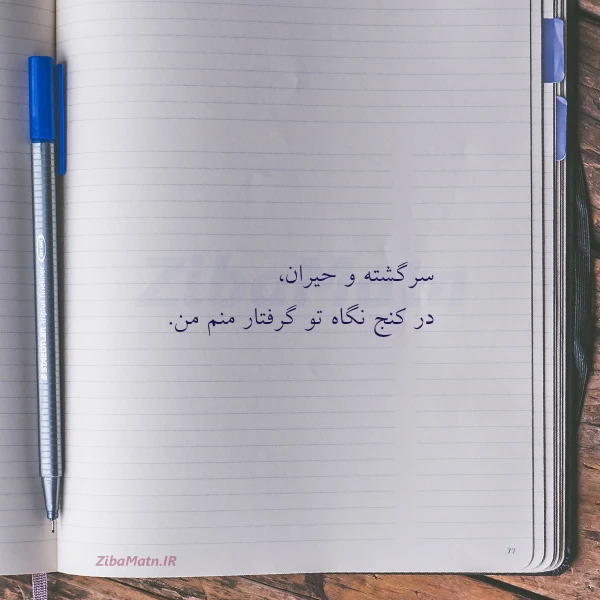 سرگشته و حیران،
در کنج نگاه تو گرفتار منم من.
ZibaMatn.IR
77